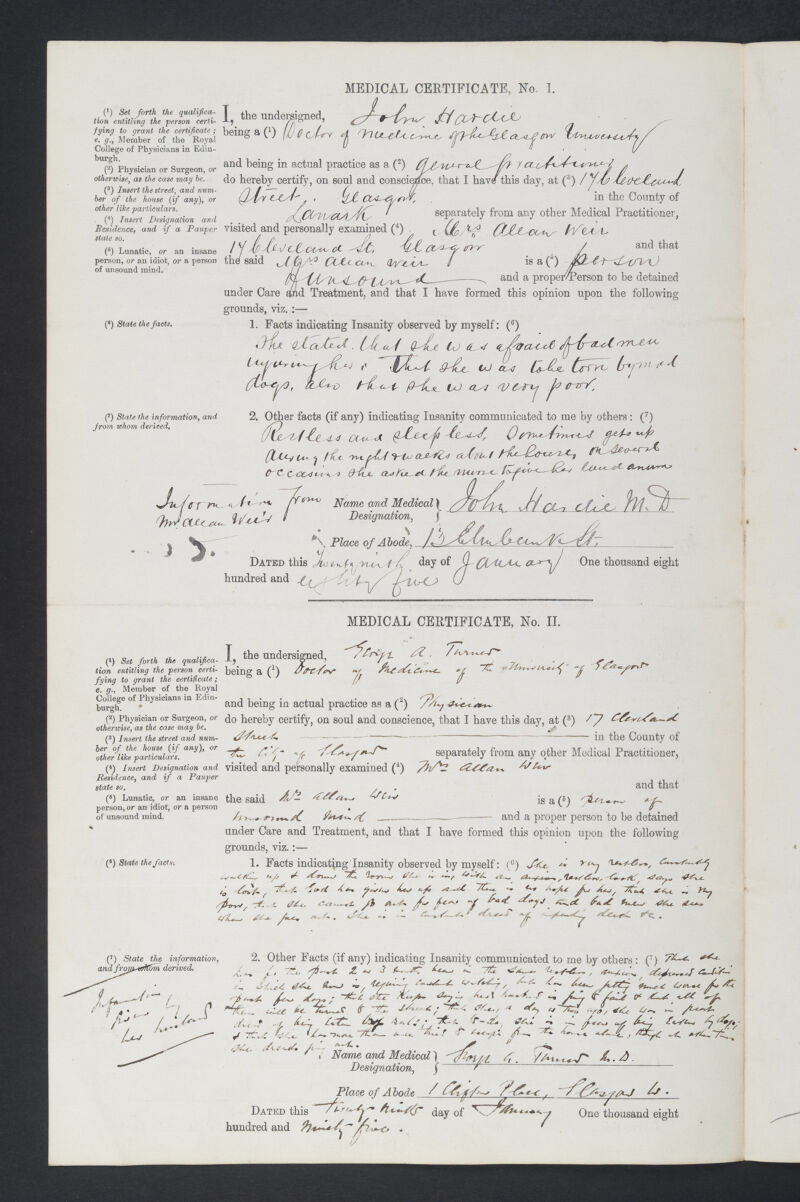 MEDICAL CERTIFICATE, No. I.
(1) Set forth the qualifica-
tion entitling the person certi-
fying to grant the certificate;
e. g., Member of the Royal
College of Physicians in Edin-
burgh.
(2) Physician or Surgeon, or
otherwise, as the case may be.
(3) Insert the street, and num-
ber of the house (if any), or
other like particulars.
(4) Insert Designation and
Residence, and if a Pauper
state so.
(5) Lunatic, or an insane
person, or an idiot, or a person
of unsound mind.
I, the undersigned, John Hardie
being a (1) Doctor of Medicine of the Glasgow University
and being in actual practice as a (2) General Practitioner
do hereby certify, on soul and conscience, that I have this day, at (3) 17 Cleveland
Street, Glasgow in the County of
Lanark separately from any other Medical Practitioner,
visited and personally examined (4) Mrs Allan Weir
17 Cleveland St, Glasgow and that
the said Mrs Allan Weir is a (5) person
of Unsound and a proper Person to be detained
under Care and Treatment, and that I have formed this opinion upon the following
grounds, viz. :—
(6) State the facts.
1. Facts indicating Insanity observed by myself: (6)
She stated that she was afraid of bad men
injuring her. That she was to be torn by mad
dogs, also that she was very poor.
(7) State the information, and
from whom derived.
2. Other facts (if any) indicating Insanity communicated to me by others: (7)
Restless and sleepless. Sometimes gets up
during the night & walks about the house, on several
occasions she asked the nurse to give her laudanum
Information from
Mr Allan Weir
Name and Medical Designation, John Hardie M.D
Place of Abode, 13 Elmbank St.
DATED this twenty ninth day of January One thousand eight
hundred and eighty five
MEDICAL CERTIFICATE, No. II.
(1) Set forth the qualifica-
tion entitling the person certi-
fying to grant the certificate;
e. g., Member of the Royal
College of Physicians in Edin-
burgh.
(2) Physician or Surgeon, or
otherwise, as the case may be.
(3) Insert the street and num-
ber of the house (if any), or
other like particulars.
(4) Insert Designation and
Residence, and if a Pauper
state so.
(5) Lunatic, or an insane
person, or an idiot, or a person
of unsound mind.
I, the undersigned, George A. Turner
being a (1) Doctor of Medicine of the University of Glasgow
and being in actual practice as a (2) Physician
do hereby certify, on soul and conscience, that I have this day, at (3) 17 Cleveland
Street in the County of
the City of Glasgow separately from any other Medical Practitioner,
visited and personally examined (4) Mrs Allan Weir
and that
the said Mrs Allan Weir is a (5) person of
unsound mind and a proper person to be detained
under Care and Treatment, and that I have formed this opinion upon the following
grounds, viz. :—
(6) State the facts.
1. Facts indicating Insanity observed by myself: (6) She is very restless, constantly
walking up & down the room she is in, with an anxious, restless, look, says she
is lost, that God has given her up and there is no hope for her, that she is very
poor, that she cannot go out for fear of bad dogs and bad men she sees
when she goes out. She is in constant dread of impending death &c.
(7) State the information,
and from whom derived.
2. Other Facts (if any) indicating Insanity communicated to me by others: (7) That she
has for the past 2 or 3 months been in the same restless, anxious, depressed condition
in which she now is, requiring constant watching, but has been getting much worse for the
past few days; that she keeps saying her husband is going to fail & that all of
them will be turned to the street; that she, a day or two ago, she was in great
dread of being eaten by rats; that to-day, she is in fear of being eaten by dogs;
& that she has more than once tried to escape from the house alone, though at other times
she dreads going out.
Information
given by
her husband
Name and Medical Designation, George A. Turner M.D.
Place of Abode 1 Clifton Place, Glasgow W.
DATED this Twenty Ninth day of January One thousand eight
hundred and ninety five.